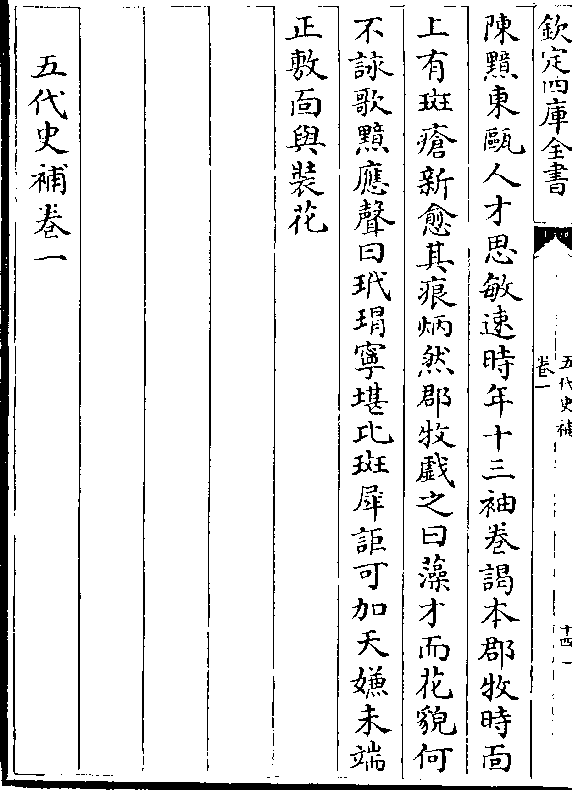 欽定四庫全書
五代史補
卷一
十四
陳黯東甌人才思敏速時年十三袖卷謁本郡牧時面
上有斑瘡新愈其痕炳然郡牧戲之曰藻才而花貌何
不詠歌黯應聲曰玳瑁寧堪比斑犀詎可加天嫌未端
正敷面與裝花
五代史補卷一